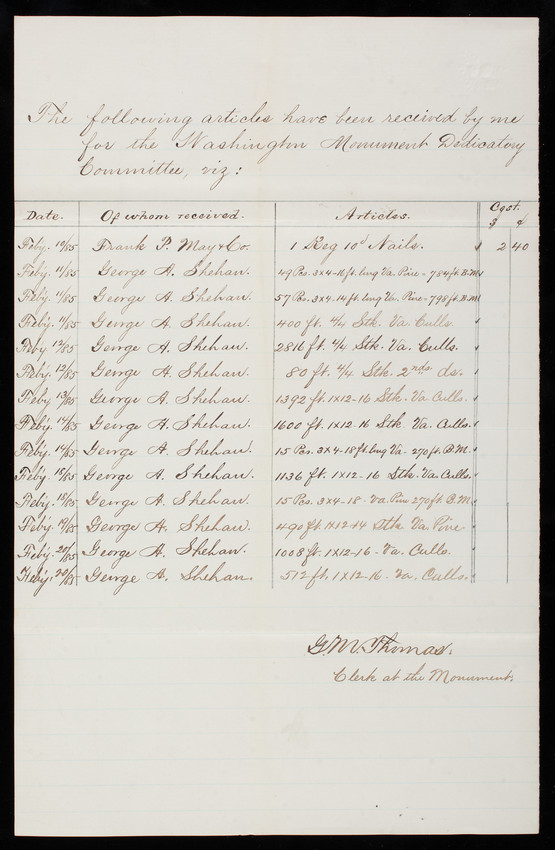 The following articles have been received by me
for the Washington Monument Dedicatory
Committee, viz:
Date. Of whom received. Articles. Cost.
$ ¢
Feby. 10/85 Frank P. May & Co. 1 Keg 10d Nails. 2 40
Feby. 11/85 George A. Shehan. 49 Pcs. 3x4-16 ft. long Va. Pine - 784 ft. B.M.
Feby. 11/85 George A. Shehan. 57 Pcs. 3x4-14 ft. long Va. Pine - 798 ft. B.M.
Feby. 11/85 George A. Shehan. 400 ft. 4/4 Stk. Va. Culls.
Feby. 12/85 George A. Shehan. 2816 ft. 4/4 Stk. Va. Culls.
Feby. 12/85 George A. Shehan. 80 ft. 4/4 Stk. 2nds do.
Feby. 13/85 George A. Shehan. 1392 ft. 1x12-16 Stk Va. Culls.
Feby. 14/85 George A. Shehan. 1600 ft. 1x12.16 Stk. Va. Culls.
Feby. 14/85 George A. Shehan. 15 Pcs. 3x4-18 ft. long Va. 270 ft. B.M.
Feby. 18/85 George A. Shehan. 1136 ft. 1x12-16 Stk. Va. Culls.
Feby. 18/85 George A. Shehan. 15 Pcs. 3x4-18- Va. Pine 270 ft. B.M.
Feby. 19/85 George A. Shehan. 490 ft 1x12-14 Stk Va. Pine
Feby. 20/85 George A. Shehan. 1008 ft. 1x12-16- Va. Culls.
Feby. 20/85 George A. Shehan. 512 ft. 1x12-16- Va. Culls.
G. W. Thomas.
Clerk at the Monument.